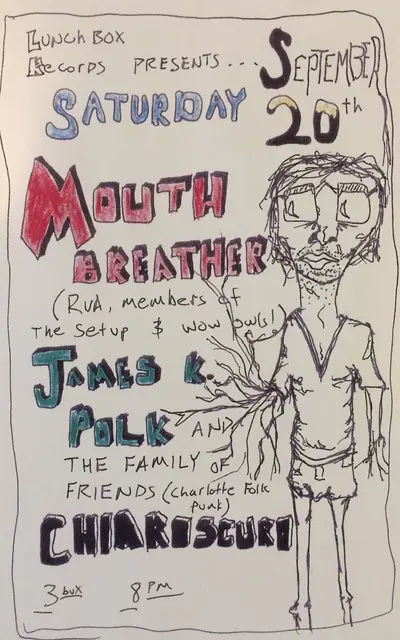 Lunch Box
Records PRESENTS...
SEPTEMBER
SATURDAY 20th
MOUTH
BREATHER
(RVA, members of
The Setup & WOW OWls!)
JAMES K.
POLK AND
THE FAMILY OF
FRIENDS (Charlotte Folk
Punk)
CHIAROSCURO
3 bux 8 PM